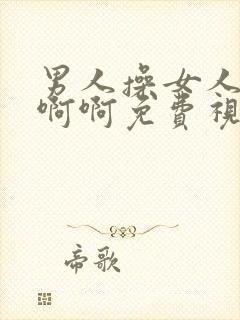 男人操女人
啊啊免费視
帝歌